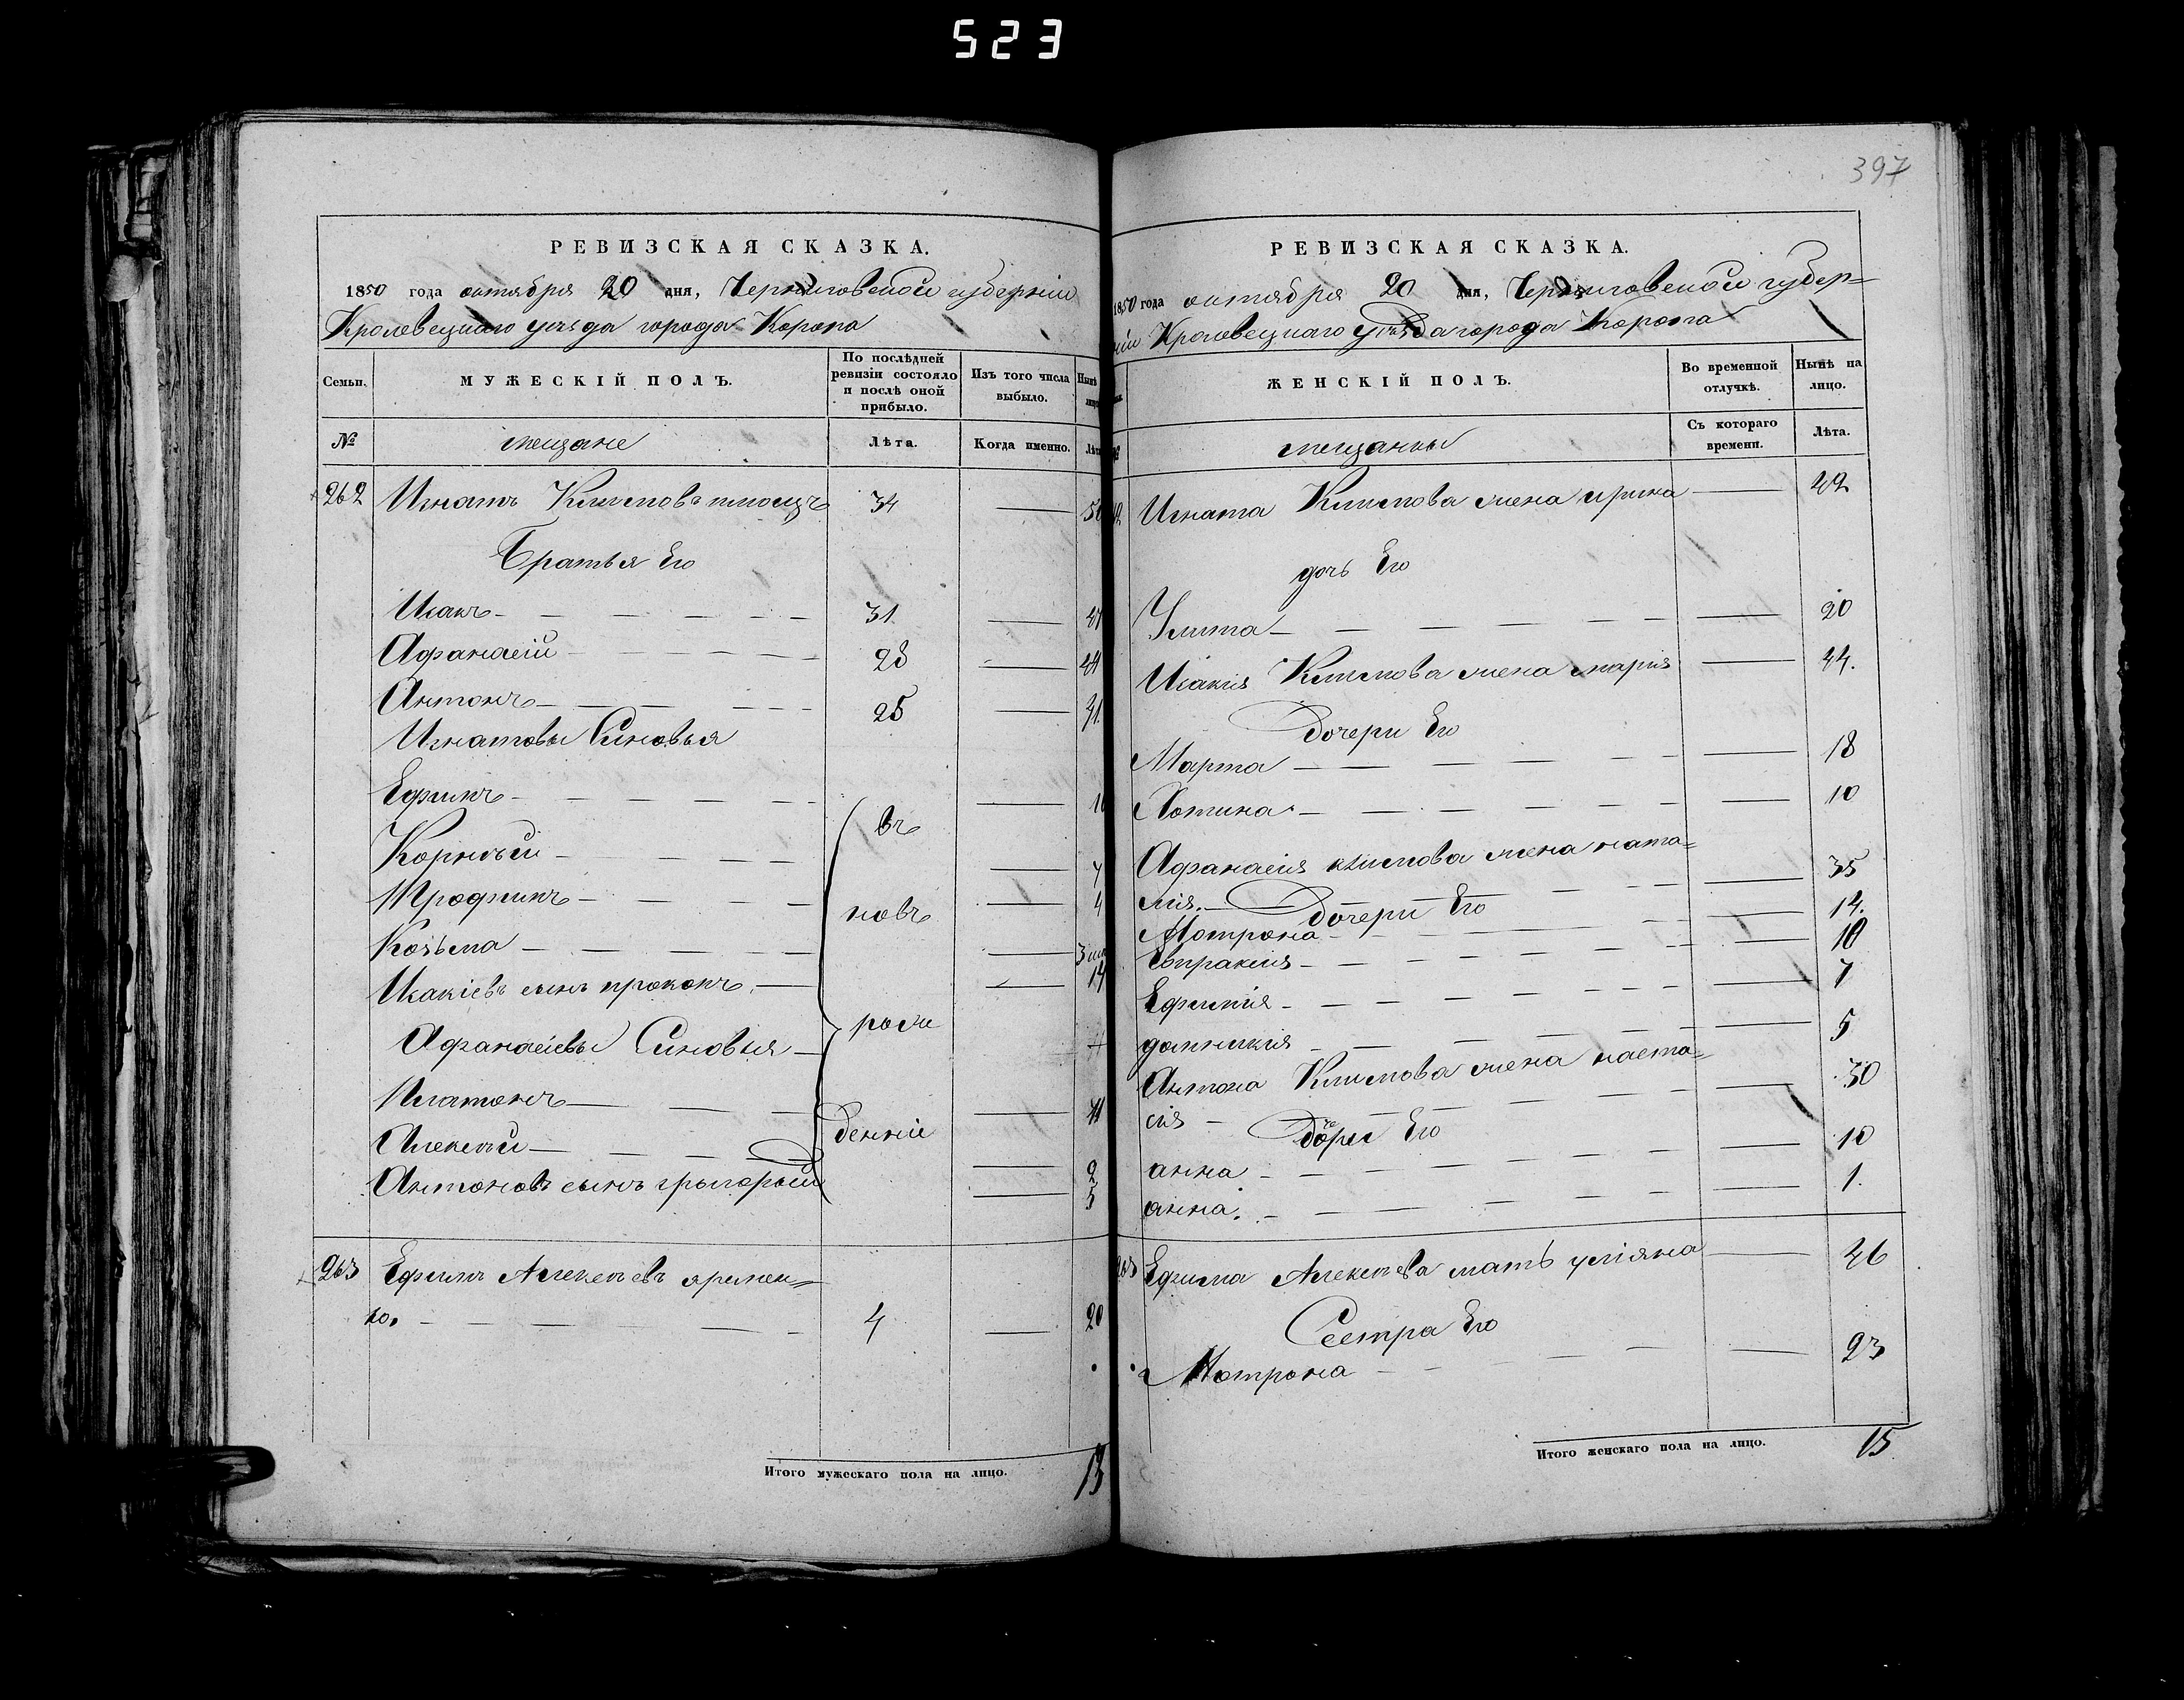 523
РЕВИЗСКАЯ СКАЗКА.
1850 года октября 20 дня, Черниговской губерніи
Кролевецкаго уѣзда города Коропа
Семьи.
МУЖЕСКІЙ ПОЛЪ.
По послѣдней ревизіи состояло и послѣ оной прибыло.
Изъ того числа выбыло.
Нынѣ
№
мещане
Лѣта.
Когда именно.
262 Игнатъ Климовъ 34
Братья Его
Исакъ 31
Афанасій 28
Антонъ 25
Игнатовы Синовья
Ефимъ
Корнѣй
Трофимъ 4
Козьма
Исакіевъ сынъ прокопъ 14
Афанасіевы Синовья
Платонъ 11
Алексѣй 2
Антоновъ сынъ григорый 5
въ
новъ
рож
денніе
263 Ефимъ Алексѣевъ яримен=
ко. 4 20
Итого мужескаго пола на лицо. 13
397
РЕВИЗСКАЯ СКАЗКА.
1850 года октября 20 дня, Черниговской губер=
ніи Кролевецкаго уѣзда города Коропа
ЖЕНСКІЙ ПОЛЪ.
Во временной отлучкѣ.
Нынѣ на лицо.
мещанки
Съ котораго времени.
Лѣта.
Игната Климова жена ирина 42
дочь Его
Улита 20
Исакія Климова жена марія 44.
Дочери Его
Марта 18
Хотина 10
Афанасія климова жена ната= 35
лія. Дочери Его
Мотрона 14.
Евпраксія 10
Ефимія 7
домникія 5
Антона Климова жена наста= 30
сія Дочери Его
анна 10
анна. 1.
263 Ефима Алексѣева мать уліяна 46
Сестра Его
Мотрона 23
Итого женскаго пола на лицо. 15